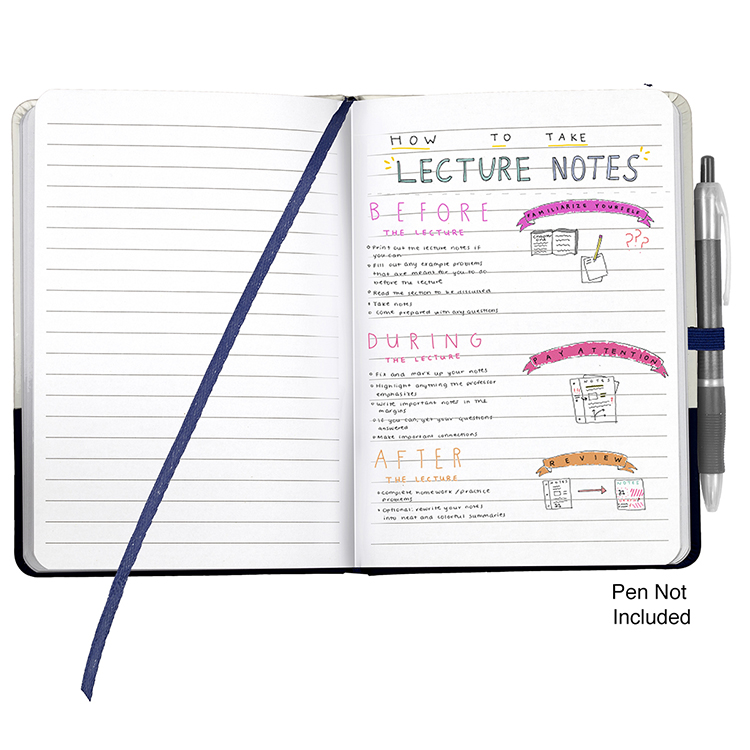 HOW TO TAKE
LECTURE NOTES
BEFORE
THE LECTURE
FAMILIARIZE YOURSELF
Print out the lecture notes if
you can
Chapter
one
???
Fill out any example problems
that are meant for you to do
before the lecture
Read the section to be discussed
Take notes
come prepared with any questions
DURING
THE LECTURE
PAY ATTENTION
Fix and mark up your notes
Highlight anything the professor
emphasizes
NOTES
Write important notes in the
margins
If you can, get your questions
answered
Make important connections
AFTER
THE LECTURE
REVIEW
complete homework/practice
problems
NOTES
optional: rewrite your notes
into neat and colorful summaries
Pen Not
Included